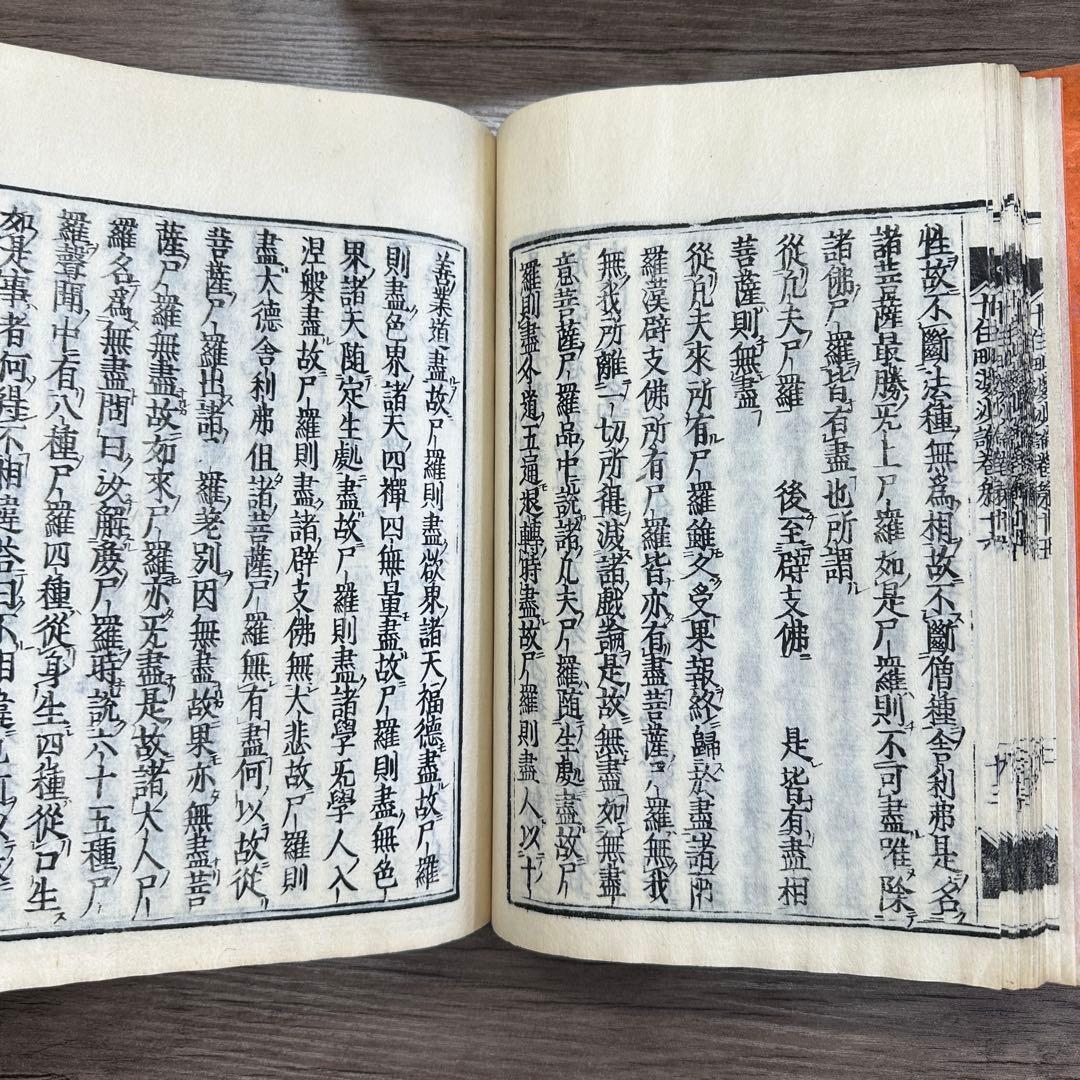 十住毗婆沙論卷第十六
性故不斷法種無爲相故不斷僧種舍利弗是名
諸菩薩最勝无上尸羅如是尸羅則不可盡唯除
諸佛尸羅皆有盡也所謂
從凡夫尸羅　後至辟支佛　是皆有盡相
菩薩則無盡
從凡夫來所有尸羅雖久受果報終歸於盡諸阿
羅漢辟支佛所有尸羅皆亦有盡菩薩尸羅無我
無我所離一切所得滅諸戲論是故無盡如無盡
意菩薩尸羅品中説諸凡夫尸羅随生處盡故尸
羅則盡外道五通退轉時盡故尸羅則盡人以十
善業道盡故尸羅則盡欲界諸天福德盡故尸羅
則盡色界諸天四禪四無量盡故尸羅則盡無色
界諸天随定生處盡故尸羅則盡諸學无學人入
涅槃盡故尸羅則盡諸辟支佛無大悲故尸羅則
盡大德舍利弗但諸菩薩尸羅無有盡何以故從
菩薩尸羅出諸　羅差別因無盡故果亦無盡菩
薩尸羅無盡故如來尸羅亦无盡是故諸大人尸
羅名爲無盡問曰汝解慶尸羅時説六十五種尸
羅聲聞中有八種尸羅四種從身生四種從口生
如是事者何得不相違荅曰不相違